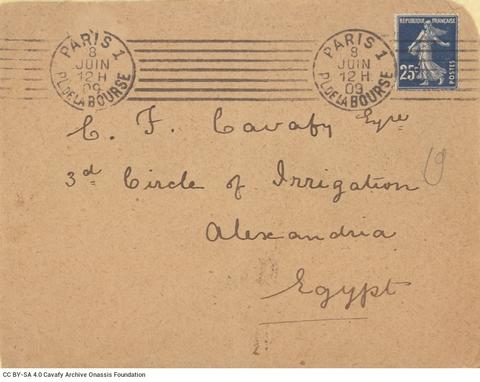 PARIS 1
8
JUIN
12 H
09
PL. DE LA BOURSE
PARIS 1
8
JUIN
12 H
09
PL. DE LA BOURSE
REPUBLIQUE FRANÇAISE
25c
POSTES
C. F. Cavafy Esqre
3d Circle of Irrigation
Alexandria
Egypt
CC BY-SA 4.0 Cavafy Archive Onassis Foundation